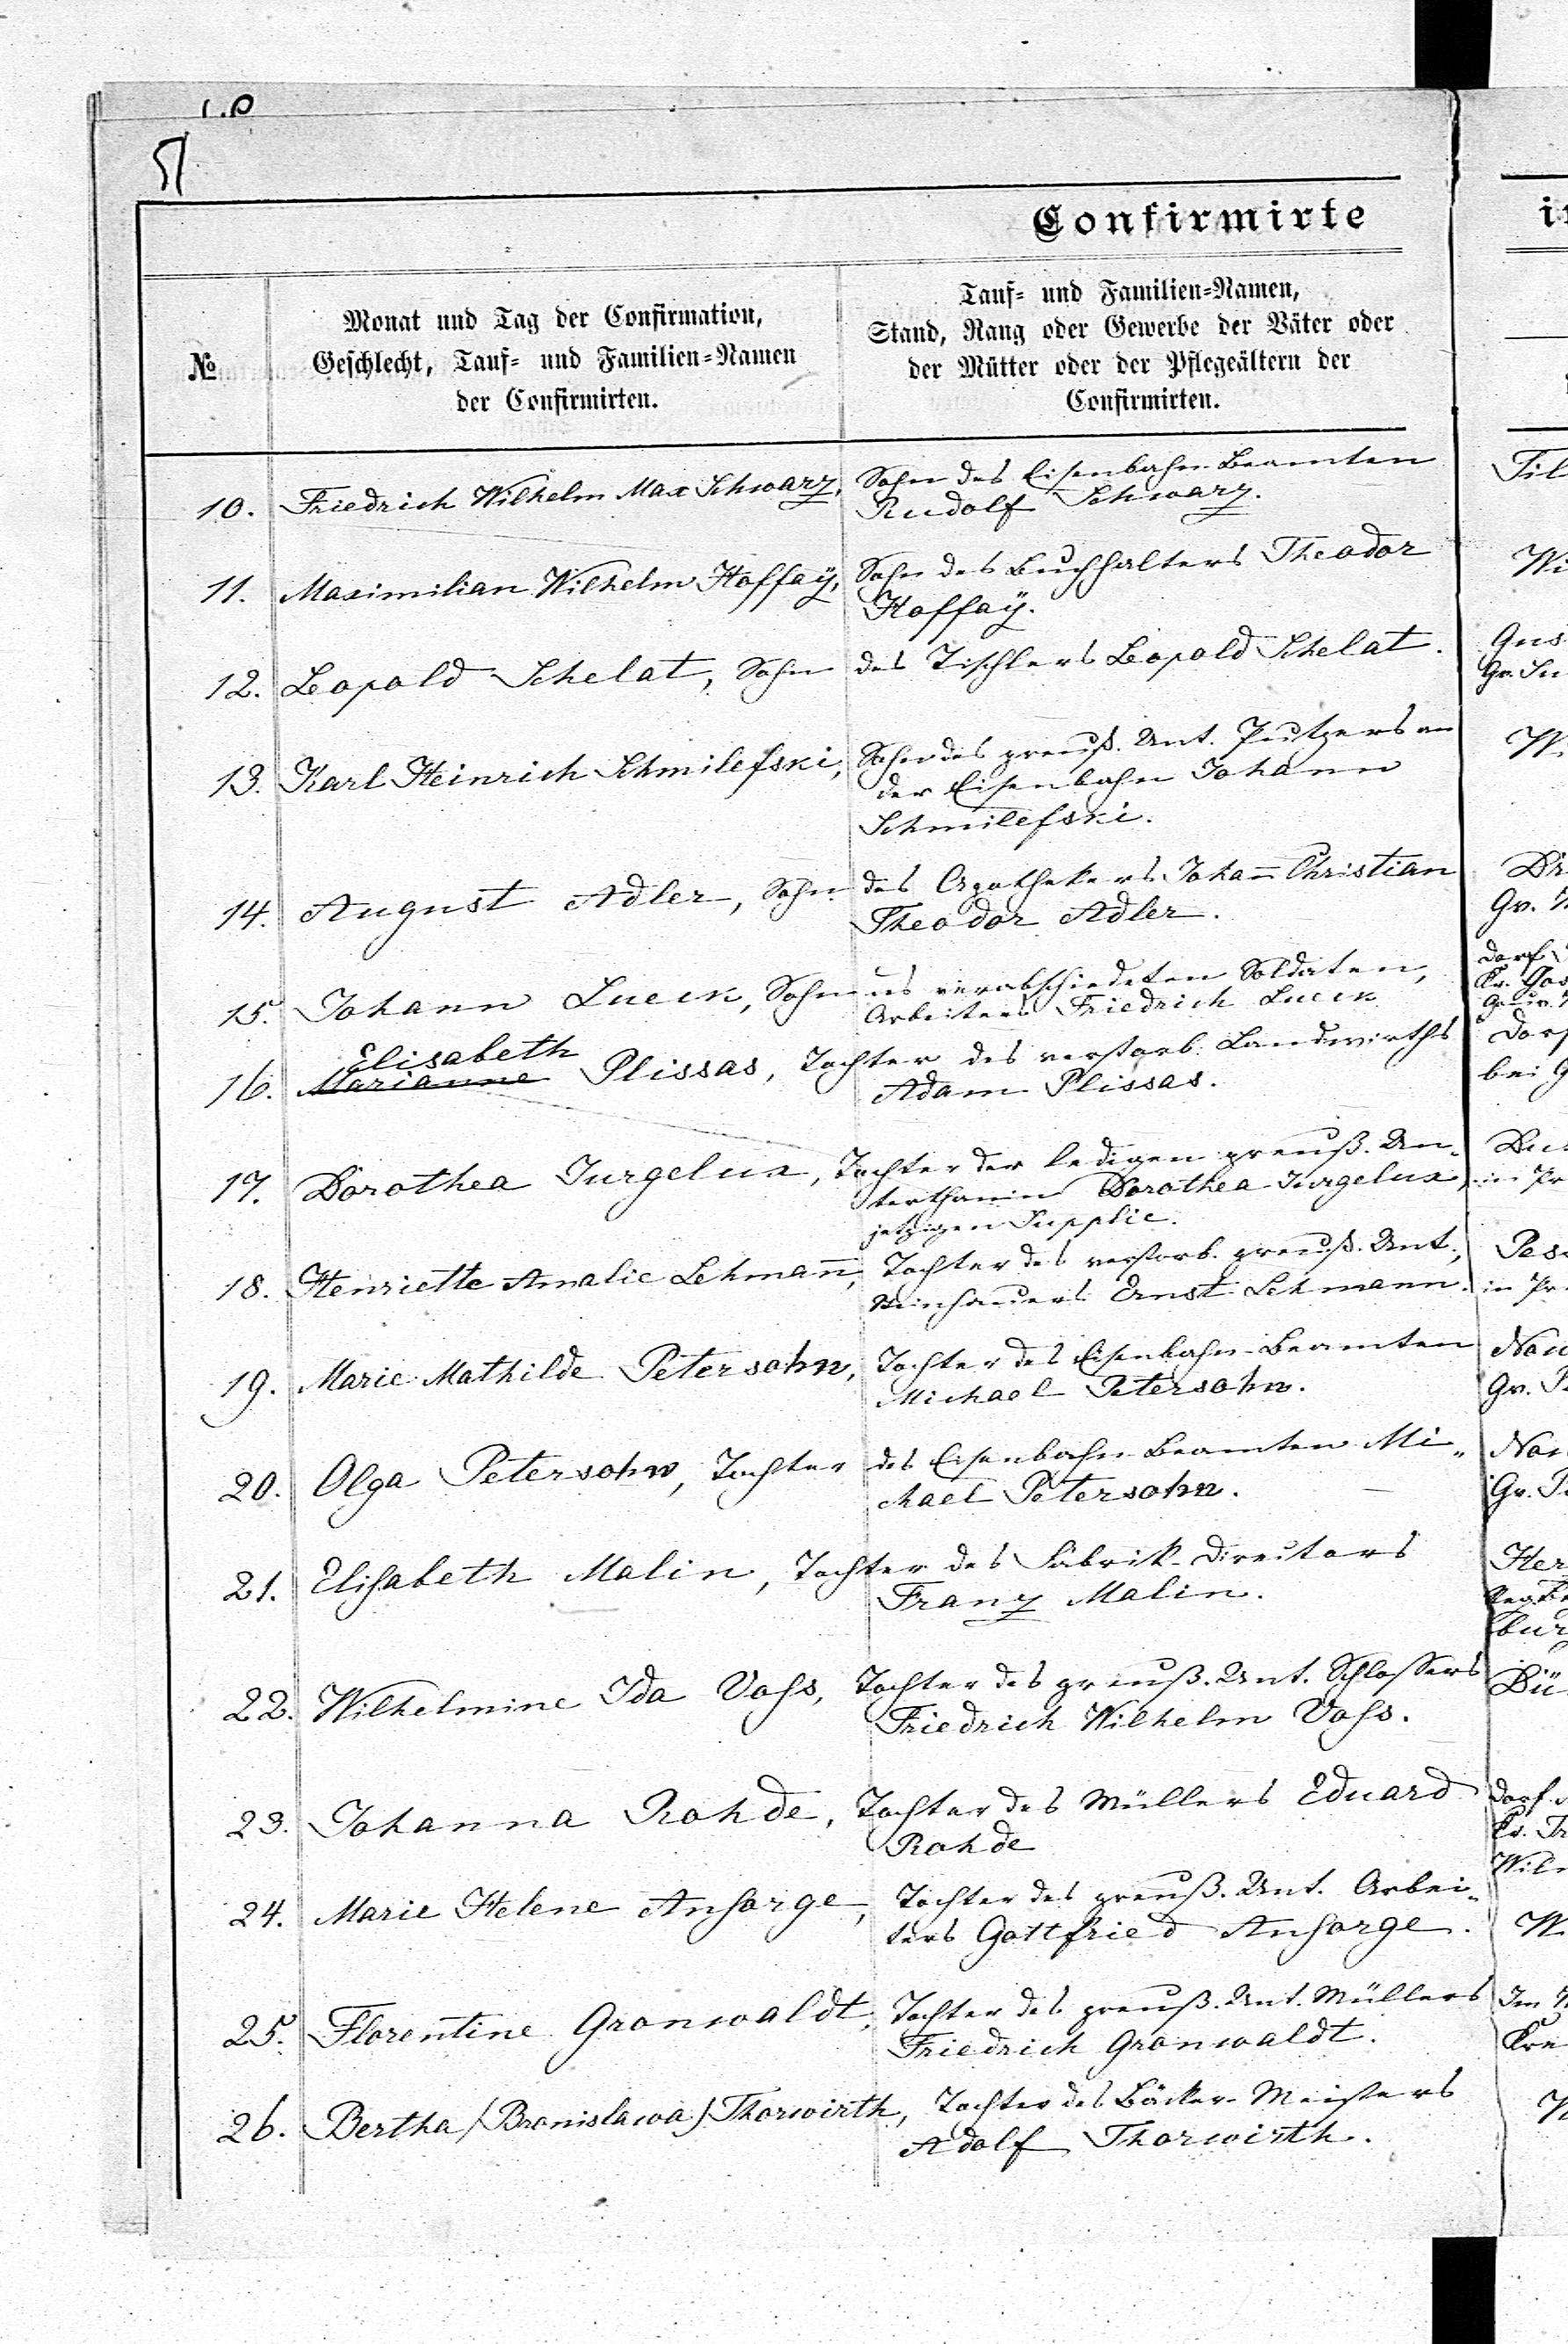 51
Confirmirte
№
Monat und Tag der Confirmation,
Geschlecht, Tauf- und Familien-Namen
der Confirmirten.
Tauf- und Familien-Namen,
Stand, Rang oder Gewerbe der Väter oder
der Mütter oder der Pflegeältern der
Confirmirten.
10. Friedrich Wilhelm Max Schwarz, Sohn des Eisenbahn-Beamten
Rudolf Schwarz.
11. Maximilian Wilhelm Hoffaÿ, Sohn des Buchhalters Theodor
Hoffaÿ.
12. Leopold Schelat, Sohn des Tischlers Leopold Schelat.
13. Karl Heinrich Schmilefski, Sohn des preuß. Unt. Putzers an
der Eisenbahn Johann
Schmilefski.
14. August Adler, Sohn des Apothekers Johan̅ Christian
Theodor Adler.
15. Johann Lueck, Sohn des verabschiedeten Soldaten,
Arbeiters Friedrich Lueck
Elisabeth
16. Marianne Plissas, Tochter des verstorb. Landwirths
Adam Plissas.
17. Dorothea Jurgelux, Tochter der ledigen preuß. Un-
terthanin Dorothea Jurgelux,
jetzigen Supplic.
18. Henriette Amalie Lehman̅, Tochter des verstorb. preuß. Unt.,
Steinhauers Ernst Lehmann.
19. Marie Mathilde Petersohn, Tochter des Eisenbahn-Beamten
Michael Petersohn.
20. Olga Petersohn, Tochter des Eisenbahn-Beamten Mi-
chael Petersohn.
21. Elisabeth Malin, Tochter des Fabrik-Directors
Franz Malin.
22. Wilhelmine Ida Voss, Tochter des preuß. Unt. Schlossers
Friedrich Wilhelm Voss.
23. Johanna Rohde, Tochter des Müllers Eduard
Rohde
24. Marie Helene Ansorge, Tochter des preuß. Unt. Arbei-
ters Gottfried Ansorge.
25. Florentine Gronwaldt, Tochter des preuß. Unt. Müllers
Friedrich Gronwaldt.
26. Bertha /Bronislawa/ Thorwirth, Tochter des Bäcker-Meisters
Adolf Thorwirth.